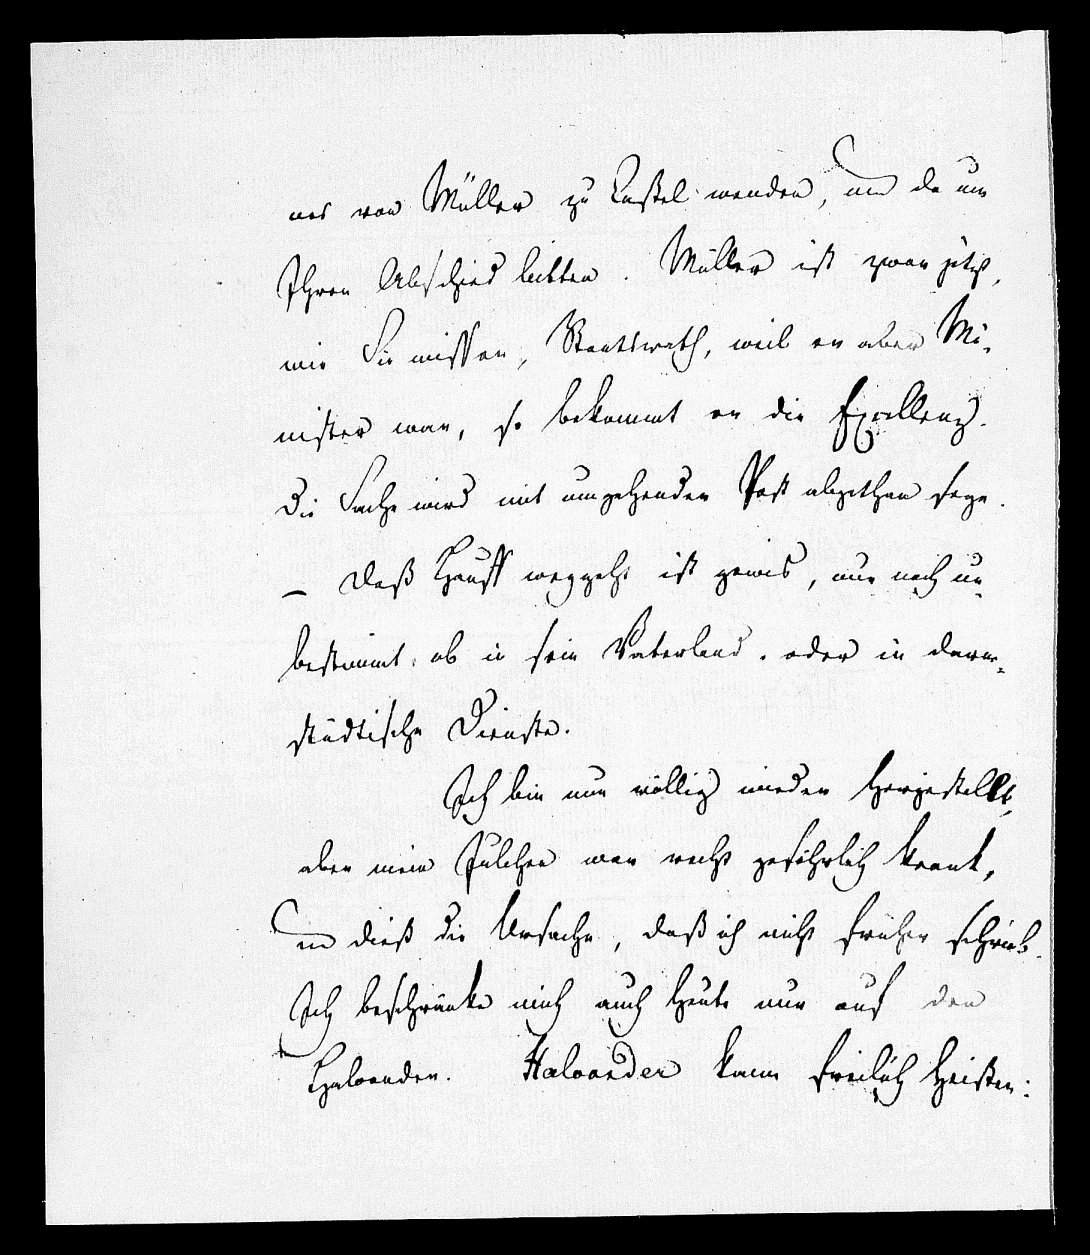 nes von Müller zu Caßel wenden, und da um
Ihren Abschied bitten. Müller ist zwar jetzt,
wie Sie wissen, Staatsrath, weil er aber Mi-
nister war, so bekommt er die Excellenz.
Die Sache wird mit umgehender Post abgethan seyn.
– Daß Hauff weggeht ist gewis, nur noch un-
bestimmt, ob in sein Vaterland, oder in darm-
städtische Dienste.
Ich bin nun völlig wieder hergestellt,
aber mein Julchen war recht gefährlich krank,
und dieß die Ursache, daß ich nicht früher schrieb.
Ich beschränke mich auch heute nur auf den
Haloander. Haloander kann freilich heißen: